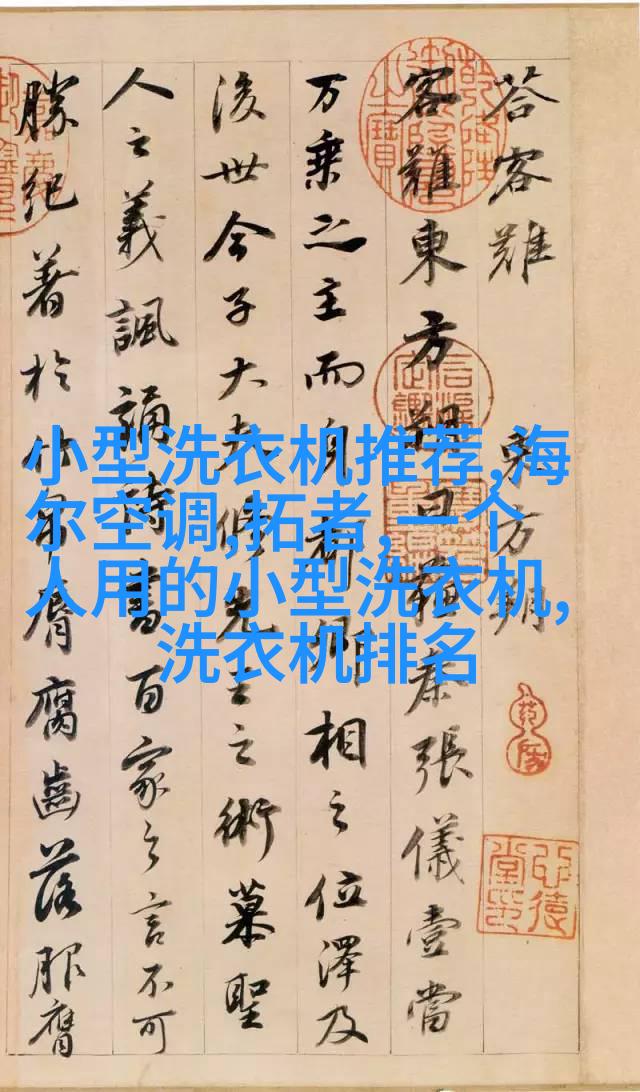 荅客難 東方朔
客難東方朔曰蘇秦張儀壹當
万乘之主而身都卿相之位澤及
後世今子大夫脩先王之術慕聖
人之義諷誦詩書百家之言不可
勝紀著於竹帛脣腐齒落服膺
小型洗衣机推荐,海
尔空调,拓者,一个
人用的小型洗衣机,
洗衣机排名